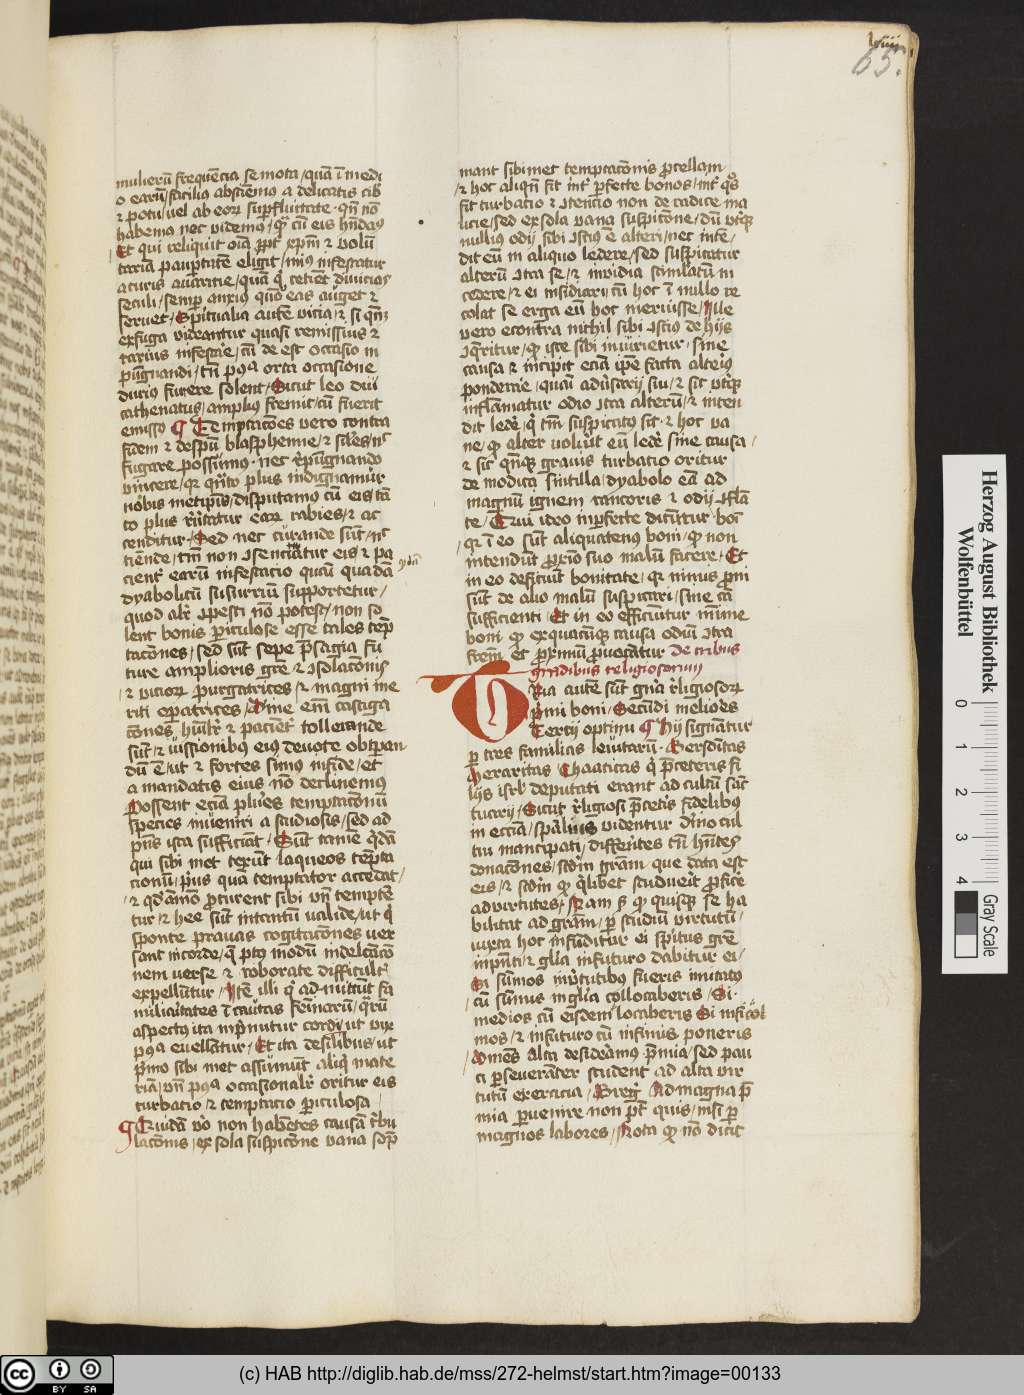 65.
mulierū frequēcia se mota / quā ī med
o earū / facilius abstiēmo a delicatis cib
⁊ potu / vel ab eorū suꝑfluitate · qn̄ nō
habemo nec videmus /
Et qui reliquit oīa ꝓpt̄ xp̄m ⁊ volū
tariā paup̄tatē eligit / min⁹ infestatur
a curis auaritie / quā q̄ retiēt diuicias
seculi / semꝑ anxius quō eas auget ⁊
seruet / Spiritualia autē vitia / ⁊ si
exfuga videantur quasi remissius ⁊
rarius infestare / cū de est occasio in
pūgnandi / tn̄ pꝰ orta occasione
durius furere solent / Sicut leo diu
cathenatus / amplius fremit / cū fuerit
emissus ¶ Temptacōes vero contra
fidem ⁊ despū blasphemie /
fugare possumus · nec rep̄ugnando
vincere / quanto plus indignamur
nobis metipsis / disputamus cū eis tā
to plus irritatur earū rabies / ⁊ ac
cenditur / Sed nec curande sūt /
tiende / tn̄ non ꝯsenciātur eis ⁊ pa
cient̄ earū infestacio quam quadā
dyabolicū susurriū supportetur /
quod alr̄ ꝯpesci nō potest / non so
lent bonis periculose esse tales temp
tacōnes / sed sūt sepe p̄sagia fu
ture amplioris grē ⁊ ꝯsolacōnis
⁊ vicioꝝ purgatrices / ⁊ magni me
riti operatrices / Ome em̄ castiga
cōnes / hūilr̄ ⁊ pacient̄ tollerande
sūt / ⁊ iussionibus eius deuote obtꝑan
dū ē / ut ⁊ fortes simus in fide / et
a mandatis eius nō declinemus
Possent eciā plures temptacōnū
species inueniri a studiosis / sed ad
p̄ns ista sufficiāt · Sūt tamē q̄dā
qui sibi met texūt laqueos tēpta
cionū / prius quā temptator accedat /
⁊ qđāmō ꝓcurent sibi vn̄ tempte
tur / ⁊ hee sūt intantū valide / ut q̄
sponte prauas cogitacōnes ver
sant in corde / q̄ ꝑ modū in delectacō
nem verse ⁊ roborate difficult̄
expellūtur / Itē illi q̄ ad mittūt fa
miliaritates ī cautas feīnarū / quarū
aspectus ita inp̄mitur cordi / ut vix
pꝰ euellātur / Et ita de silibus / ut
p̄mo sibi met assumūt aliq̄ mate
riā / vn̄ pꝰ occasionalr̄ oritur eis
turbatio ⁊ temptacio ꝑiculosa /
¶ Quidā vō non habētes causā tribu
lacōnis / ex sola suspicōne vana sep̄
mant sibimet temptacōnis procellam
⁊ hoc aliqn̄ fit int̄ ꝑfecte bonos / int̄ q̄s
fit turbatio ⁊ ꝯtencio non de radice ma
licie / sed ex sola vana suspicōne / dū vterq̄
nullius odij sibi ꝯscius ē alteri / nec inte /
dit eū in aliquo ledere / sed suspicatur
alterū ꝯtra se / ⁊ inuidia stimlatum in
cedere / ⁊ ei insidiari / cū hoc ī nullo re
colat se erga eū hoc meruisse / Ille
vero econtra nichil sibi ꝯscius de hijs
ꝯqueritur / ꝙ iste sibi iniurietur · sine
causa ⁊ incipit eciā ip̄e facta alteri⁹
ponderare / quasi aduersarij sui / ⁊ sic vterq̄
inflāmatur odio ꝯtra alterū / ⁊ inten
dit ledere / q̄ tm̄ suspicatus sit · ⁊ hoc va
ne / ꝙ alter voluit eū ledere sine causa /
⁊ sic qn̄q̄ grauis turbatio oritur
de modica sintilla / dyabolo eā ad
magnū ignem rancoris ⁊ odij ꝯfla
te / Qui ideo inperfecte dicūtur boi
q̄ ī eo sūt aliquatenus boni / ꝙ non
intendūt ꝓximo suo malū facere · Et
in eo deficiūt bonitate / q̄ nimis p̄ni
sūt de alio malū suspicari / sine cā
sufficienti · Et in eo efficiūtur minime
boni ꝙ ex quacūq̄ causa odiū ꝯtra
frem̄ et ꝓximū prouocātur De tribus
gradibus religiosorum
Tria autē sūt gn̄a religiosoꝝ
Primi boni / Secūdi meliores
Tercij optimi ¶ Hij signātur
ꝑ tres familias leuitarū · Gersonitas
Meraritas / Chaaticas q̄ p̄ceteris fi
lijs isrl̄ deputati erant ad cultū sūt
tuarij / Sicut religiosi p̄ceteris fidelibus
in eccīa / spalius videntur diuīo cul
tui mancipati / differētes tn̄ hūtes
donacōnes / scdm grām / que data est
eis / ⁊ scdm ꝙ q̄libet studuerit proficere
ad virtutes / Nam scđm ꝙ quisq̄ se ha
bilitat ad grām / ꝑ studiū virtutū /
iuxta hoc infūditur ei spiritus grē
inp̄nti / ⁊ gl̄ia infuturo dabitur ei /
Si sūmos in virtutibus fueris imitatus
cū sūmis in gl̄ia collocaberis / Si
medios cū eisdem locaberis Si infi
mos / ⁊ infuturo cū infimis poneris
Omēs alta desideramus p̄mia / sed pau
ci perseueranter student ad alta vir
tutū exercicia / Greg̃ Ad magna p̄
mia peruenire non pt̄ quis / nisi ꝑ
magnos labores / Nota ꝙ nō dicit
Herzog August Bibliothek
Wolfenbüttel
0 1 2 3 4
Gray Scale
cc BY SA
(c) HAB http://diglib.hab.de/mss/272-helmst/start.htm?image=00133